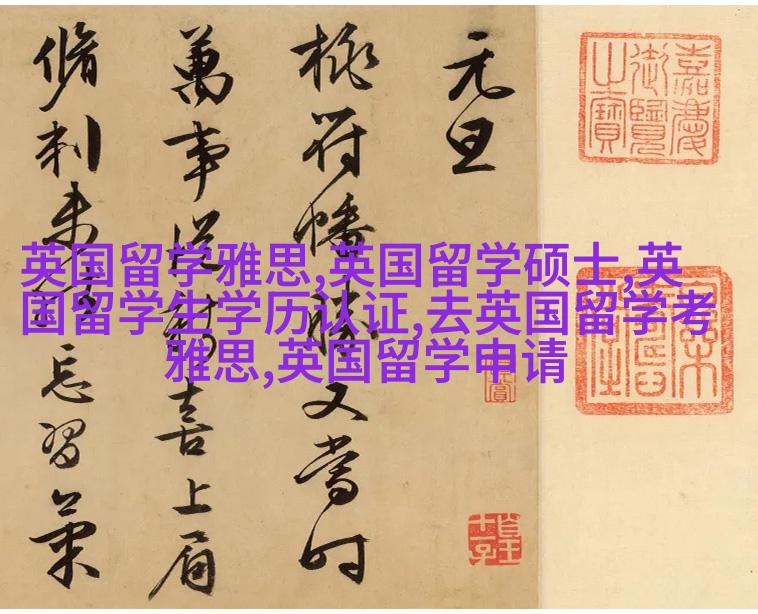 英国留学雅思,英国留学硕士,英
国留学生学历认证,去英国留学考
雅思,英国留学申请
嘉慶御覽之寶
元旦
桃符幡勝又當時
萬事從新喜上眉
脩刺未忘習